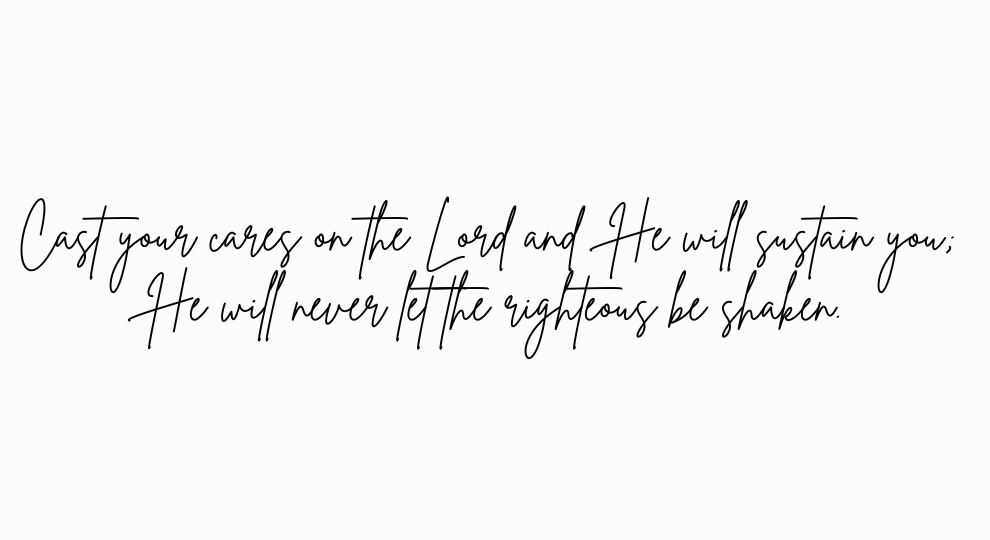 Cast your cares on the Lord and He will sustain you;
He will never let the righteous be shaken.